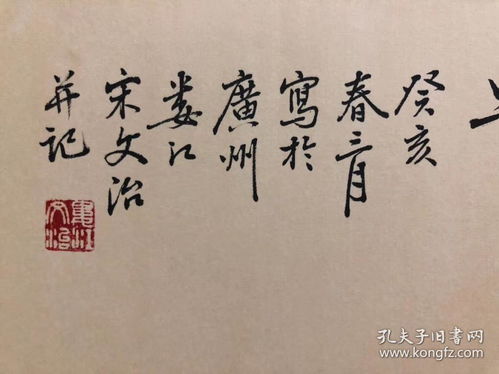 癸亥
春三月
寫於
廣州
婁江
宋文治
并記
婁江
文治
孔夫子旧书网
www.kongfz.com